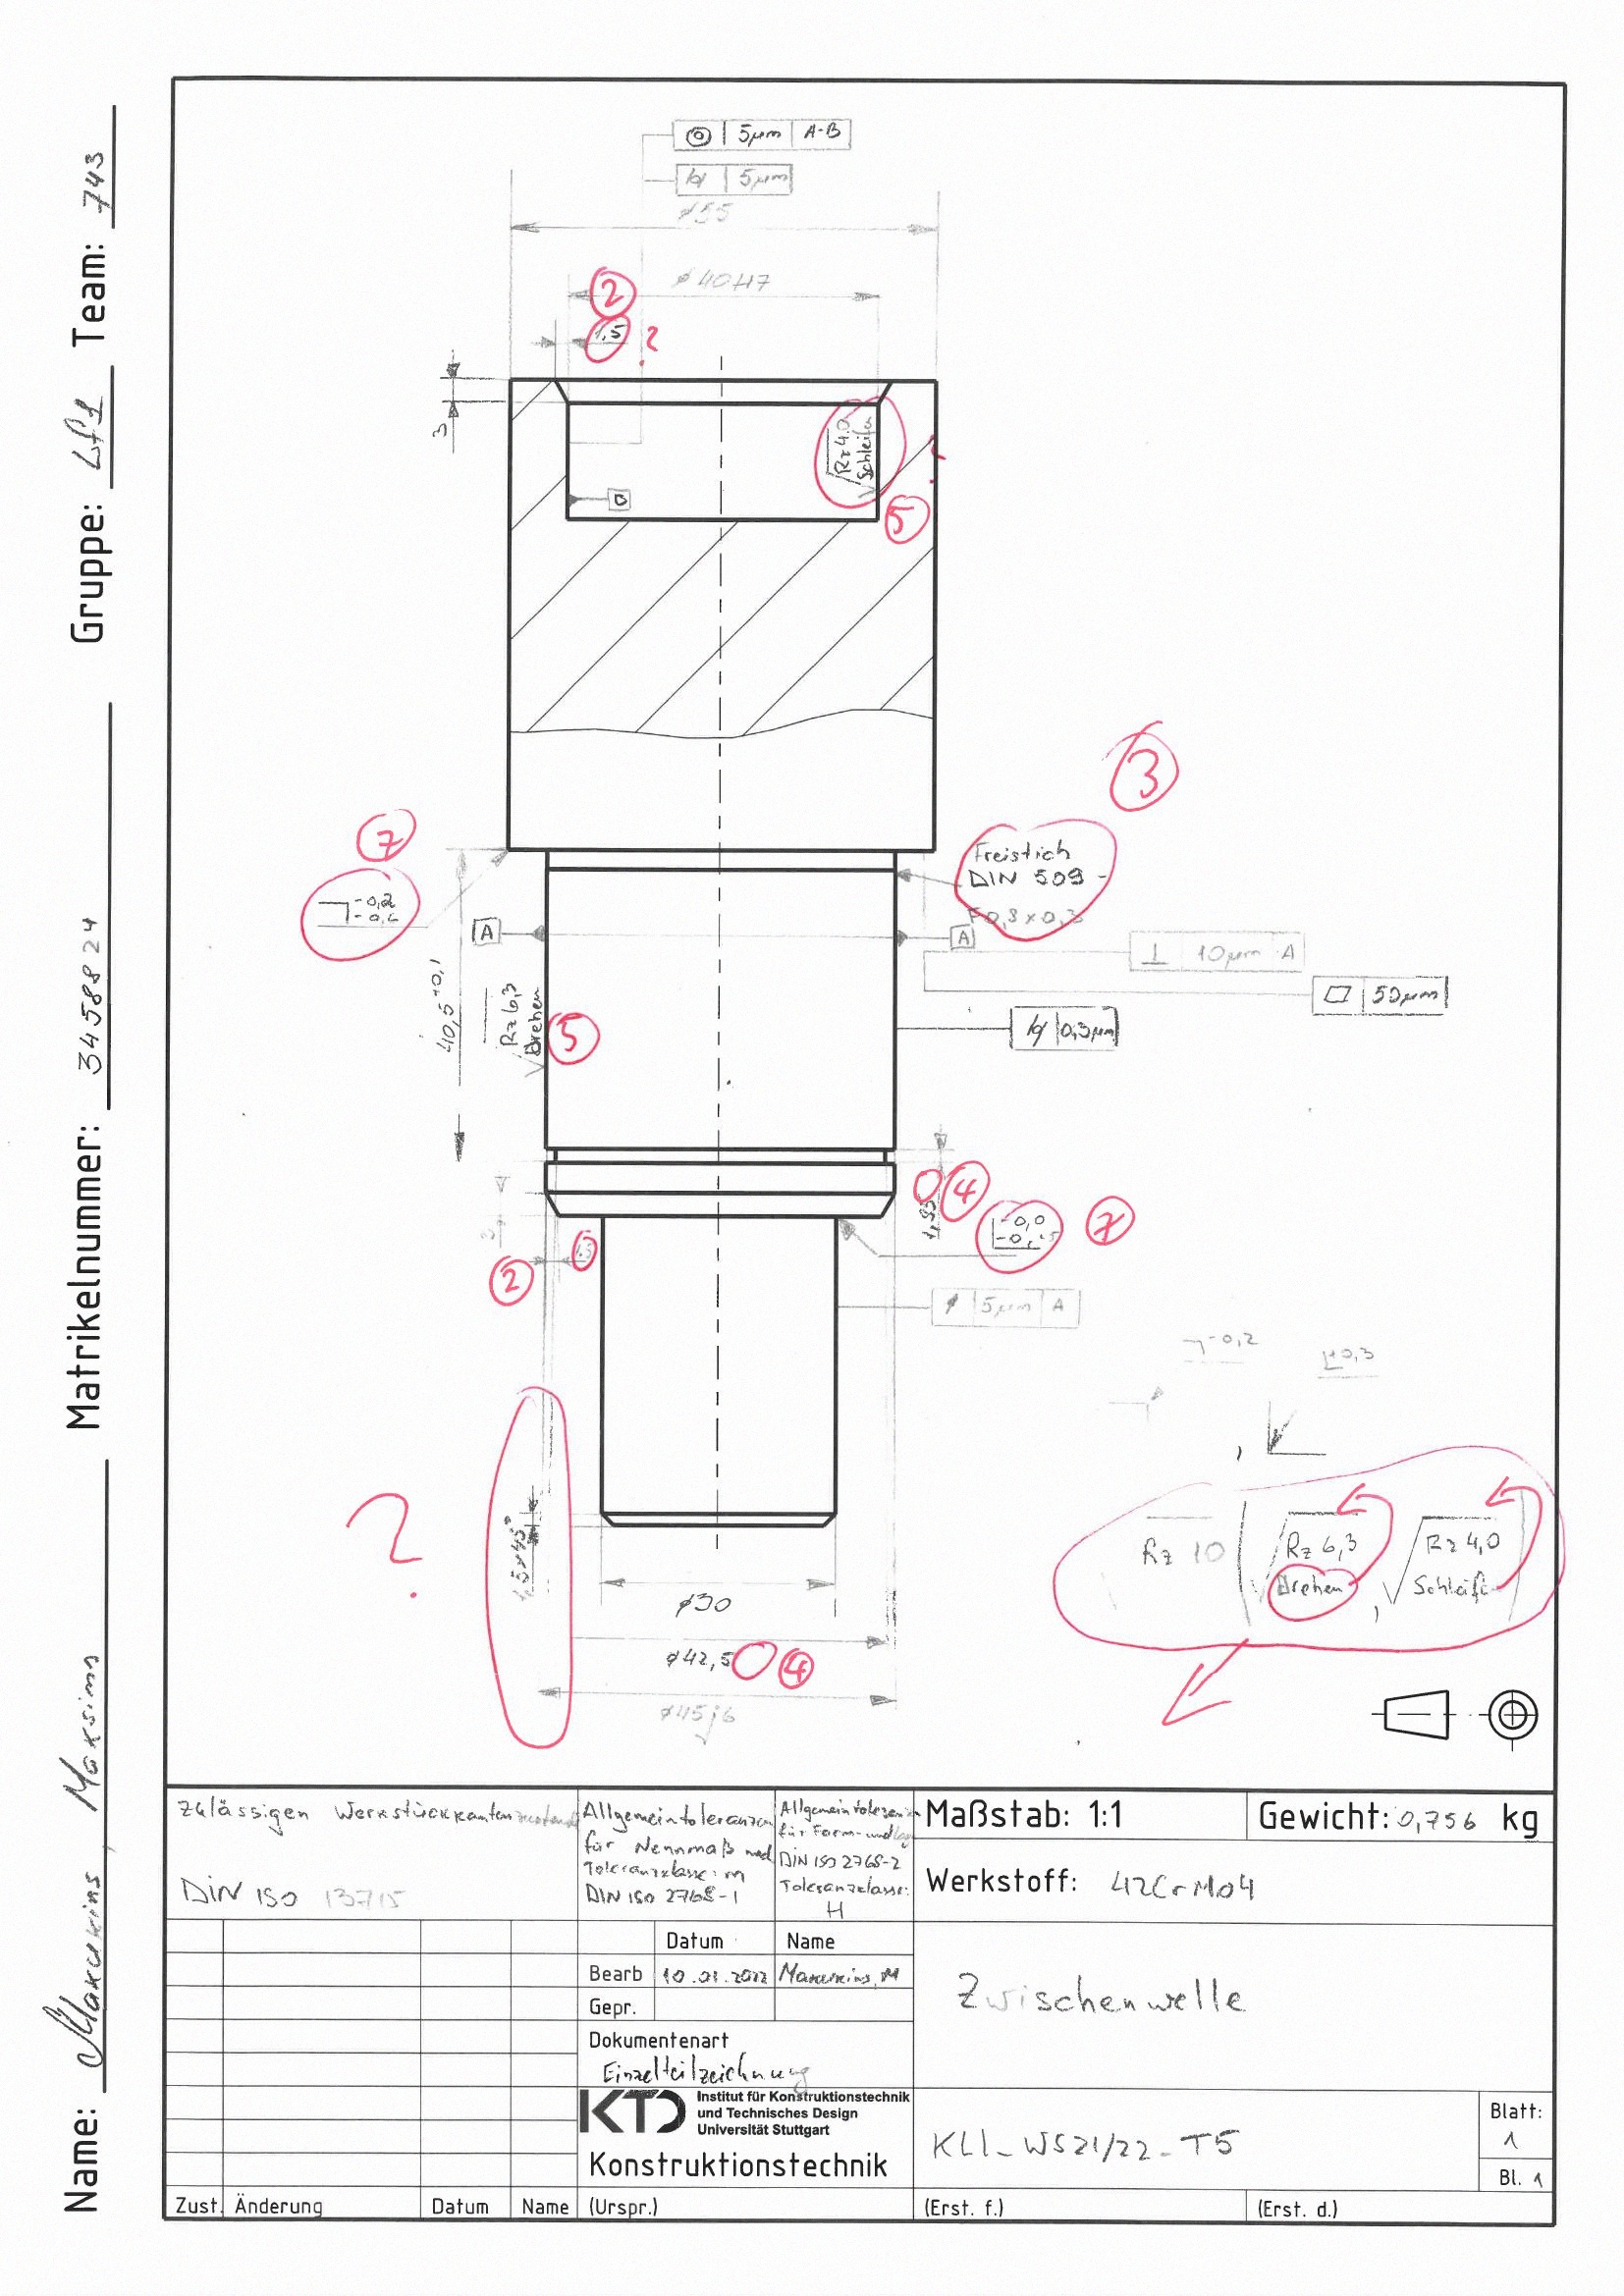 Name: Makukins, Maksims Matrikelnummer: 3458824 Gruppe: Lf1 Team: 743
◎ 5µm A-B
5µm
ø55
ø40H7
2
1,5 ?
3
√Rz 4,0
Schleifen
5
D
3
Freistich
DIN 509 -
F0,8 x 0,3
7
-0,2
A
A
⊥ 10µm A
▱ 50µm
0,3µm
40,5 +0,1
Rz 6,3
Drehen
5
0 4
-0,0
7
2
3
5µm A
-0,2
+0,3
1,5x45°
?
Rz 10 ( √Rz 6,3 , √Rz 4,0 )
Drehen Schleifen
ø30
ø42,5 0 4
ø45j6
zulässigen Werkstückkantenzustände
DIN ISO 13715
Allgemeintoleranzen
für Nennmaß und
Toleranzklasse: m
DIN ISO 2768-1
Allgemeintoleranzen
für Form- und Lage
DIN ISO 2768-2
Toleranzklasse:
H
Maßstab: 1:1
Gewicht: 0,756 kg
Werkstoff: 42CrMo4
Datum Name
Bearb 10.01.2022 Makukins, M
Gepr.
Zwischenwelle
Dokumentenart
Einzelteilzeichnung
KTD Institut für Konstruktionstechnik
und Technisches Design
Universität Stuttgart
Konstruktionstechnik
KLI_WS21/22_T5
Blatt:
1
Bl. 1
Zust. Änderung Datum Name (Urspr.) (Erst. f.) (Erst. d.)